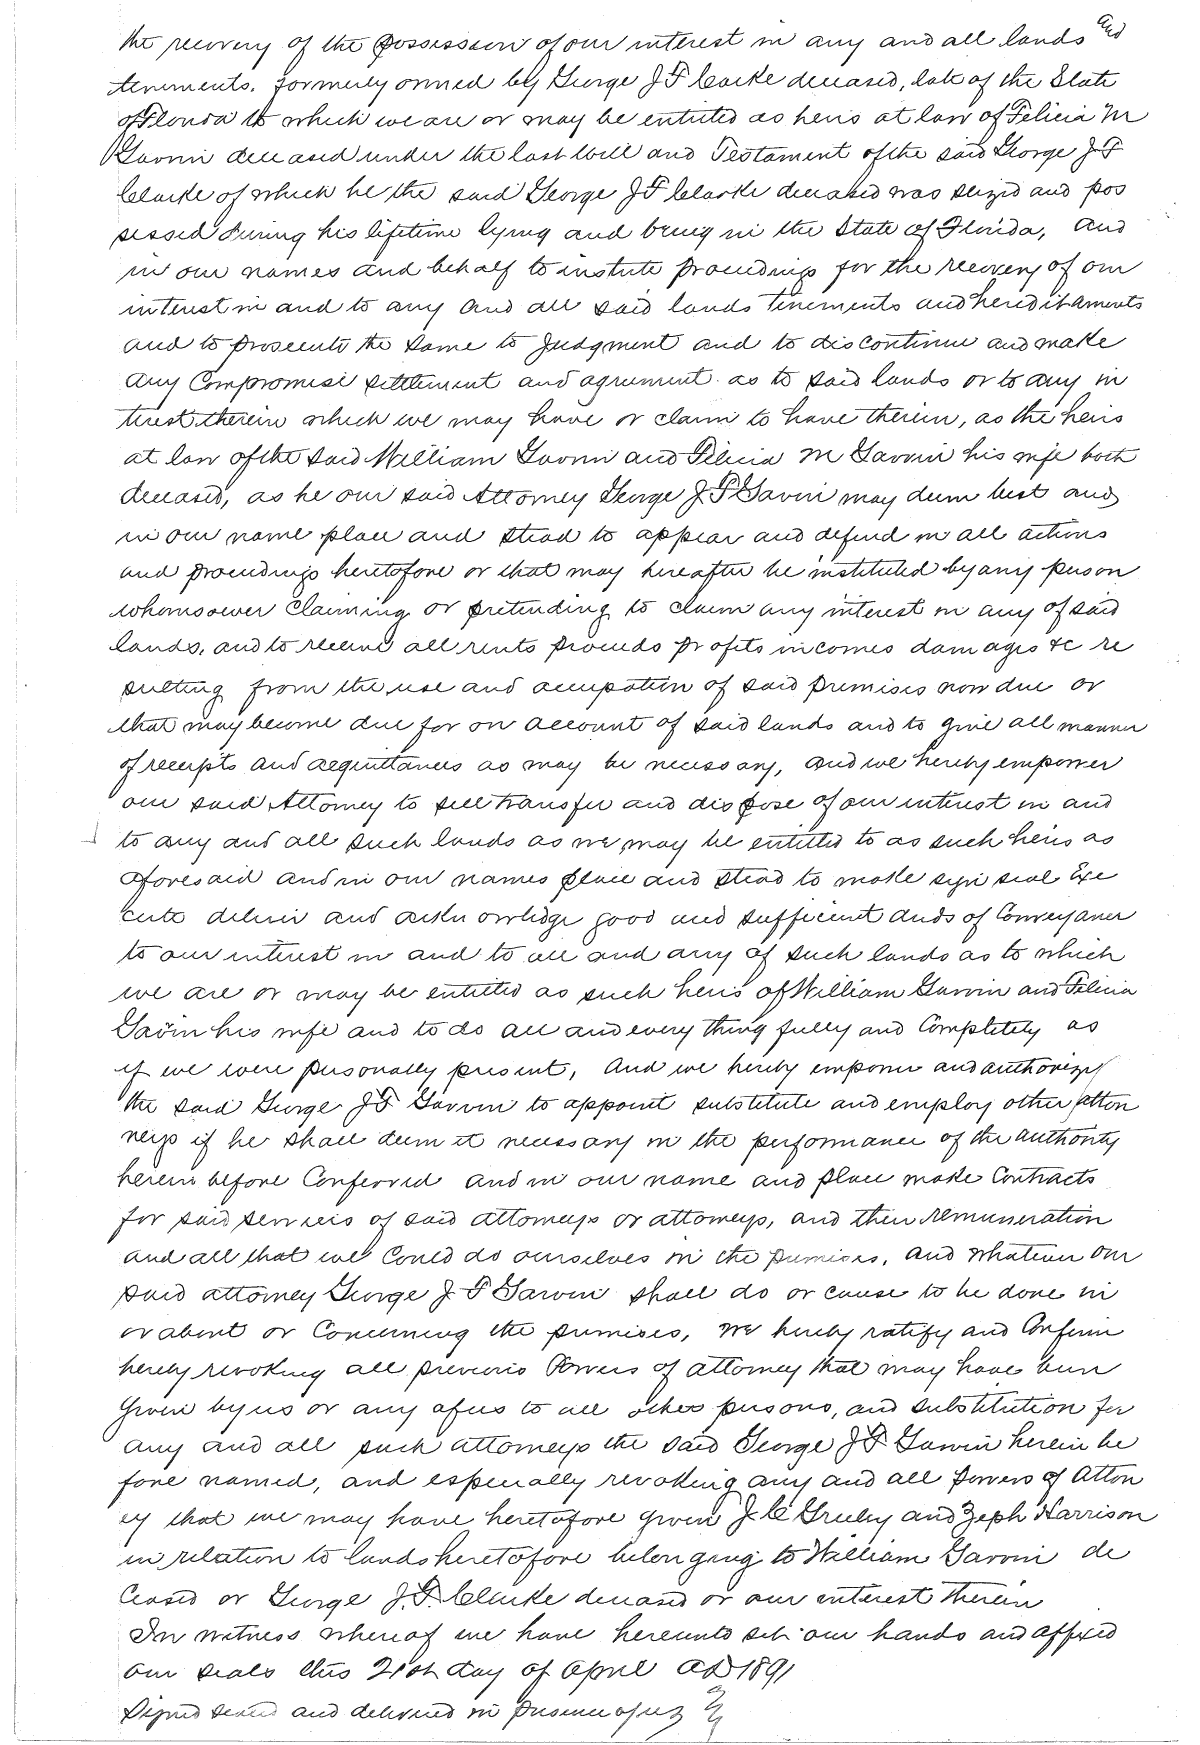 the recovery of the possession of our interest in any and all lands and
tenements, formerly owned by George J F Clarke deceased, late of the State
of Florida to which we are or may be entitled as heirs at law of Felicia M
Garvin deceased under the last will and Testament of the said George J F
Clarke of which he the said George J F Clarke deceased was seized and pos
sessed during his lifetime lying and being in the State of Florida, And
in our names and behalf to instute proceedings for the recovery of our
interest in and to any and all said lands tenements and hereditaments
and to prosecute the same to Judgment and to discontinue and make
any Compromise settlement and agrument as to said lands or to any in
terest therein which we may have or claim to have therein, as the heirs
at law of the said William Garvin and Felicia M Garvin his wife both
deceased, as he our said Attorney George J F Garvin may deem best and
in our name place and stead to appear and defend in all actions
and proceedings heretofore or that may hereafter be instituted by any person
whomsoever claiming or pretending to claim any interest in any of said
lands, and to receive all rents proceeds profits incomes damages &c re
sulting from the use and occupation of said premises now due or
that may become due for on account of said lands and to give all manner
of receipts and acquittances as may be necessary, and we hereby empower
our said Attorney to sell transfer and dispose of our interest in and
to any and all such lands as we may be entitled to as such heirs as
aforesaid and in our names place and stead to make sign seal Exe
cute deliver and acknowledge good and sufficient deeds of Conveyance
to our interest in and to all and any of such lands as to which
we are or may be entitled as such heirs of William Garvin and Felicia
Garvin his wife and to do all and every thing fully and Completely as
if we were personally present, And we hereby empower and authorize
the said George J F Garvin to appoint substitute and employ other Attor
neys if he shall deem it necessary in the performance of the authority
herein before Conferred and in our name and place make Contracts
for said services of said attorneys or attorneys, and their remuneration
and all that we Could do ourselves in the premises, and whatever our
said attorney George J F Garvin shall do or cause to be done in
or about or Concerning the premises, we hereby ratify and Confirm
hereby revoking all previous Powers of attorney that may have been
given by us or any of us to all other persons, and substitution for
any and all such attorneys the said George J F Garvin herein be
fore named, and especially revoking any and all powers of Attor
ey that we may have heretofore given J C Greeley and Zeph Harrison
in relation to lands heretofore belonging to William Garvin de
ceased or George J. F. Clarke deceased or our interest therein
In witness whereof we have hereunto set our hands and affixed
our seals this 21st day of April AD 1891
Signed sealed and delivered in presence of us